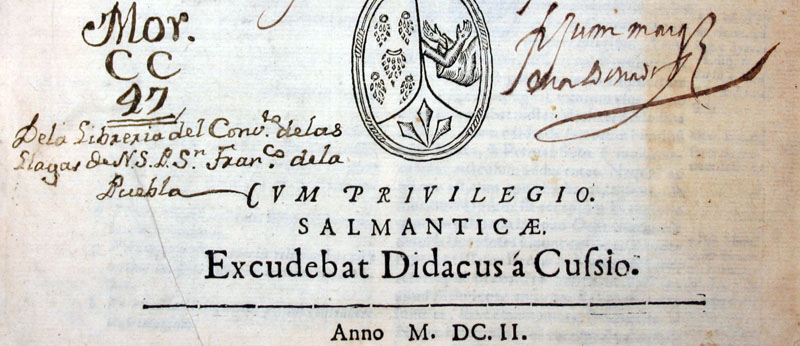 Mor.
CC
47
Dela Libreria del Conv.to de las
Llagas de N. S. P. Sn Franco dela
Puebla
CVM PRIVILEGIO.
SALMANTICÆ.
Excudebat Didacus á Cuſsio.
Anno M. DC. II.